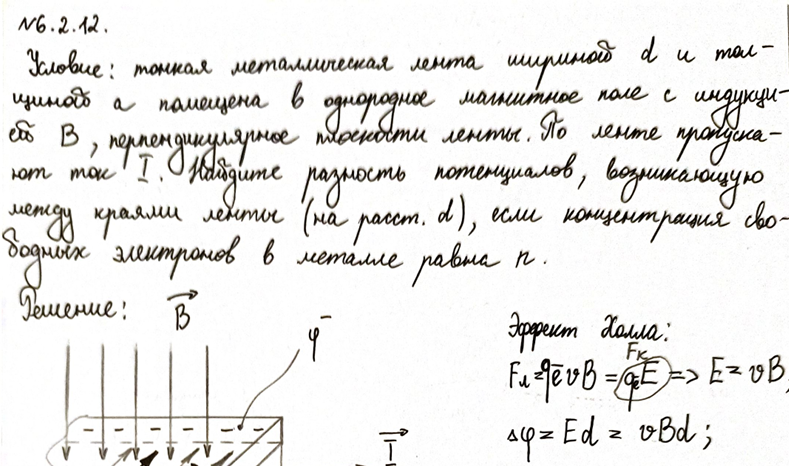 №6.2.12.
Условие: тонкая металлическая лента шириной d и тол-
щиной a помещена в однородное магнитное поле с индукци-
ей B, перпендикулярное плоскости ленты. По ленте пропуска-
ют ток I. Найдите разность потенциалов, возникающую
между краями ленты (на расст. d), если концентрация сво-
бодных электронов в металле равна n.
Решение:
B
φ⁻
I
Эффект Холла:
Fк
Fл = qₑvB = qₑE => E = vB,
Δφ = Ed = vBd;